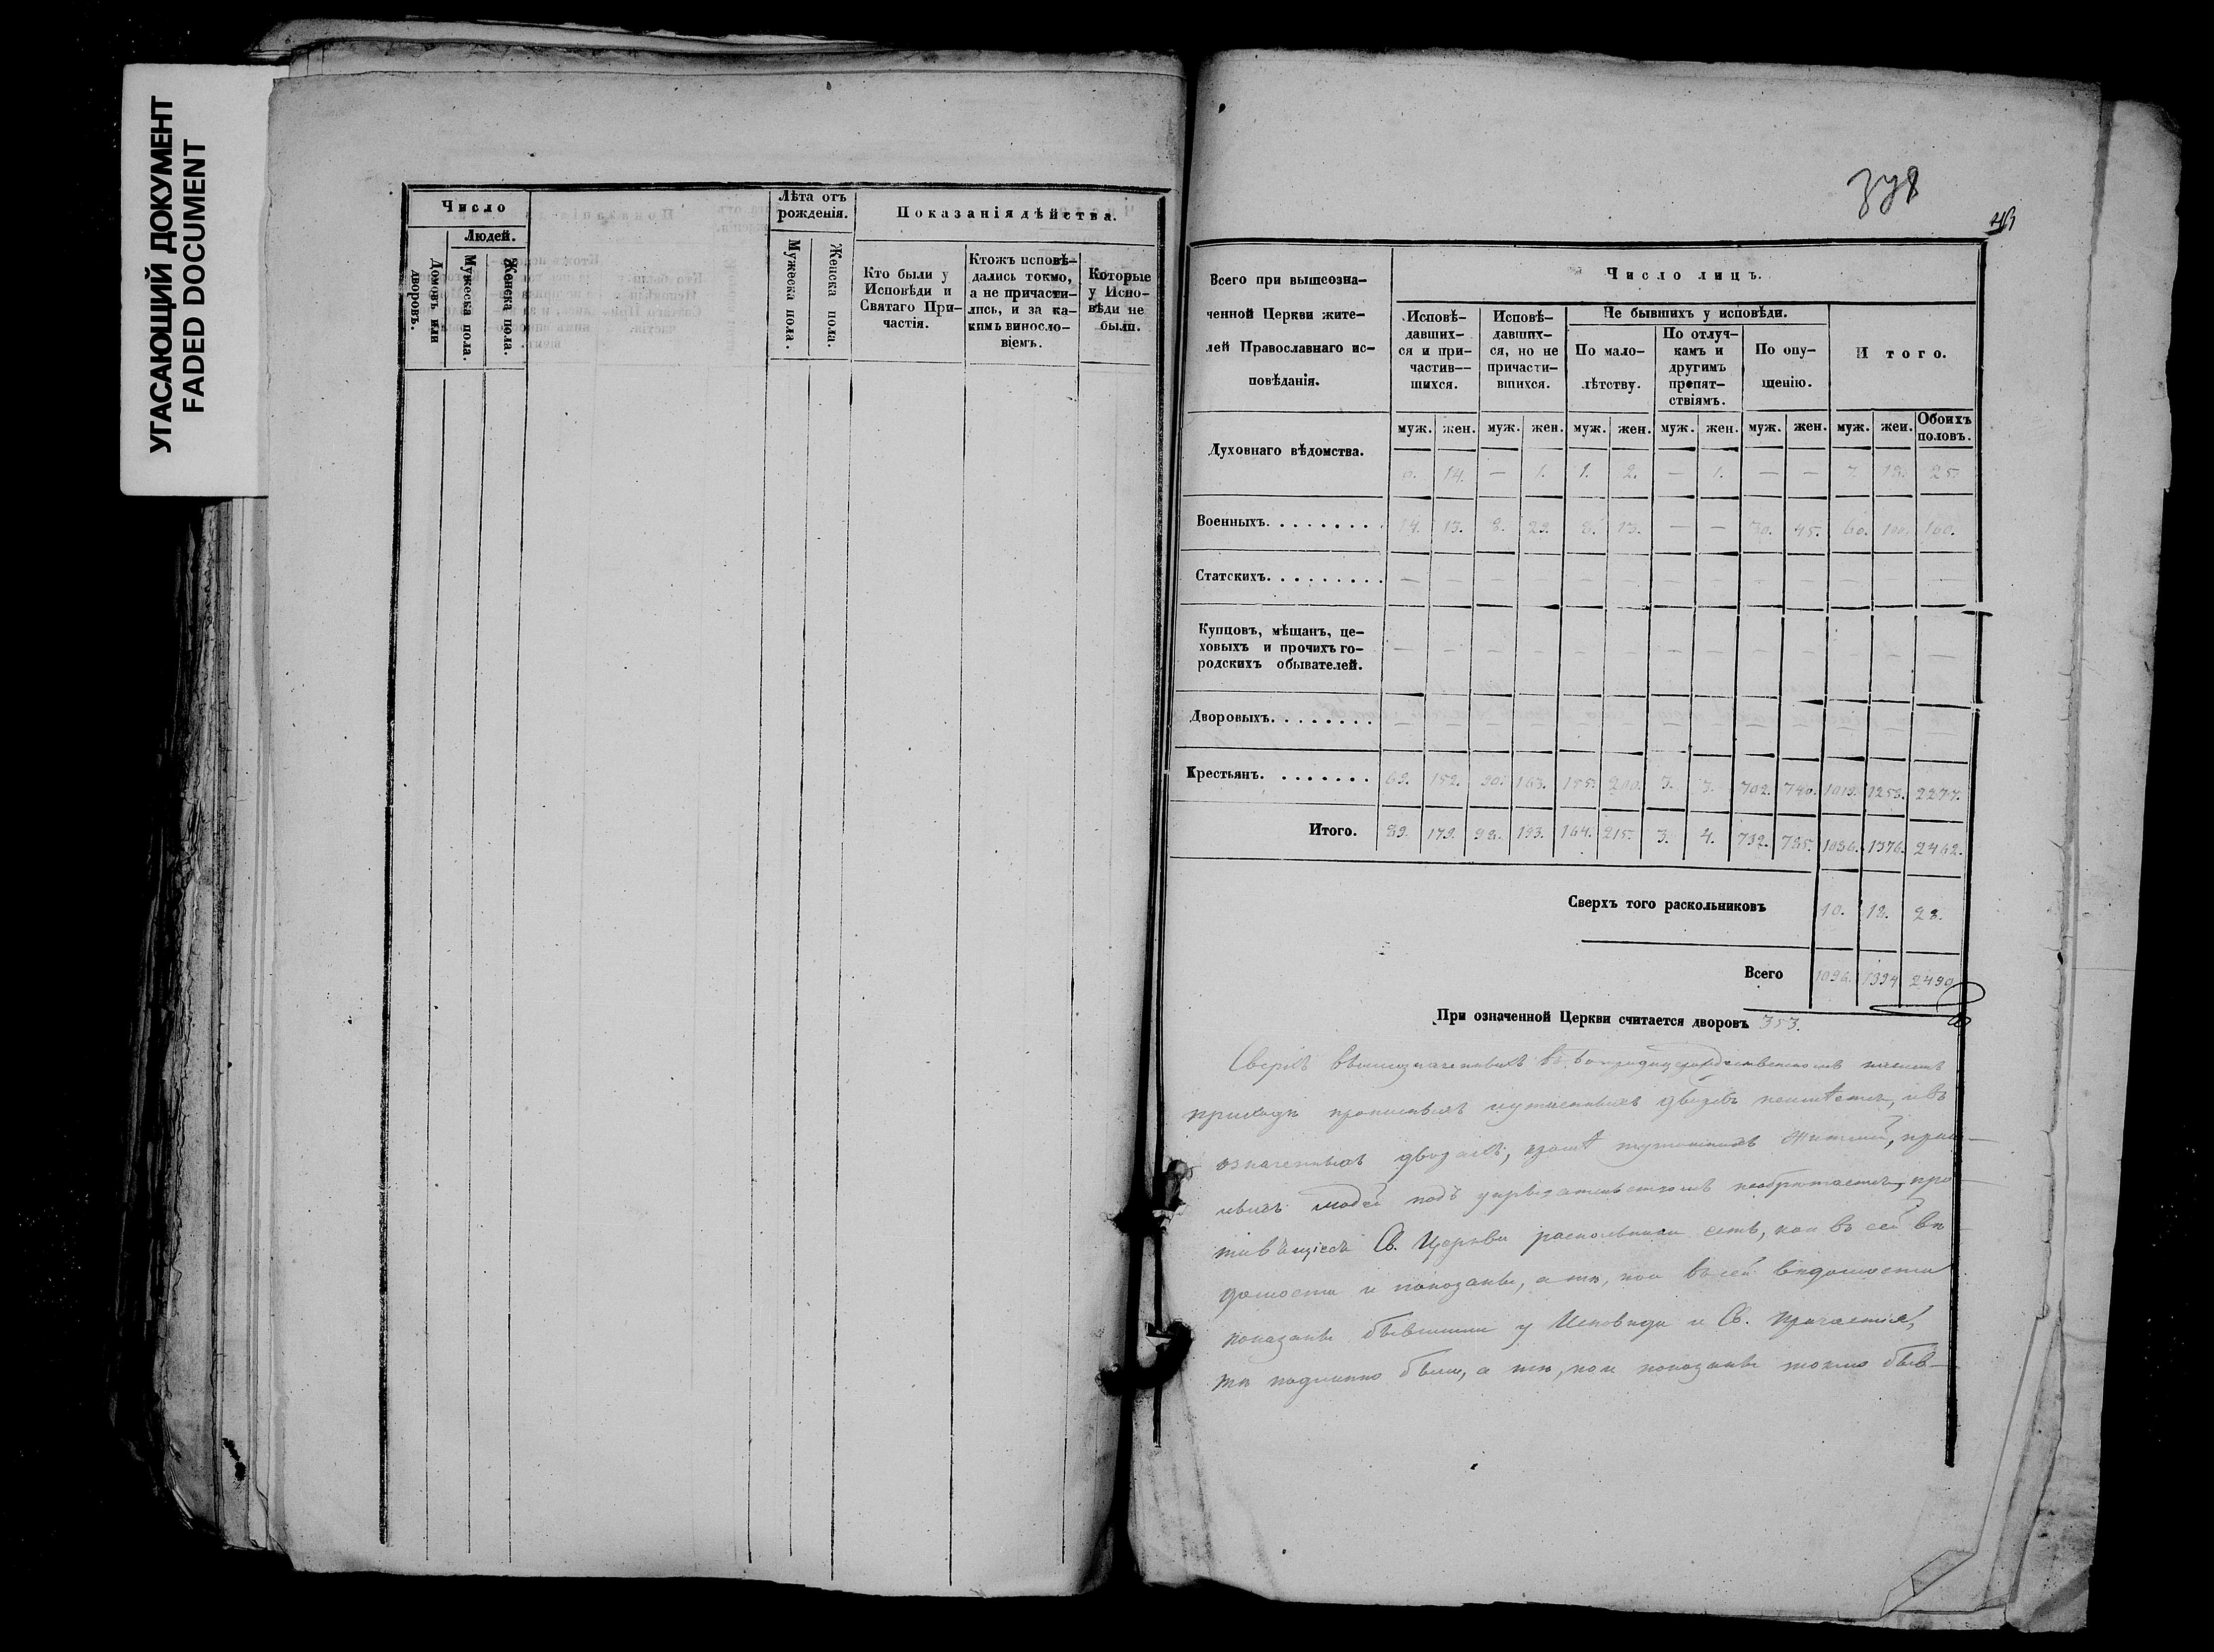 УГАСАЮЩИЙ ДОКУМЕНТ
FADED DOCUMENT
Число
Людей.
Домовъ или дворовъ.
Мужеска пола.
Женска пола.
Лѣта отъ
рожденія.
Мужеска пола.
Женска пола.
Показанія дѣйства.
Кто были у
Исповѣди и
Святаго При-
частія.
Ктожъ исповѣ-
дались токмо,
а не причасти-
лись, и за ка-
кимъ винословіемъ.
Которые
у Испо-
вѣди не
были.
Всего при вышеозна-
ченной Церкви жите-
лей Православнаго ис-
повѣданія.
Число лицъ.
Исповѣ-
давших-
ся и при-
частив-
шихся.
Исповѣ-
давших-
ся, но не
причасти-
вшихся.
Не бывшихъ у исповѣди.
По мало-
лѣтству.
По отлуч-
камъ и
другимъ
препят-
ствіямъ.
По опу-
щенію.
Итого.
муж. жен. муж. жен. муж. жен. муж. жен. муж. жен. муж. жен. Обоихъ половъ.
Духовнаго вѣдомства.
6. 14. — 1. 1. 2. — 1. — — 7. 18. 25.
Военныхъ. 14. 13. 8. 29. 8. 13. — — 30. 45. 60. 100. 160.
Статскихъ. — — — — — — — — — — — — —
Купцовъ, мѣщанъ, це-
ховыхъ и прочихъ го-
родскихъ обывателей. — — — — — — — — — — — — —
Дворовыхъ. — — — — — — — — — — — — —
Крестьянъ. 69. 152. 90. 163. 155. 200. 3. 3. 702. 740. 1019. 1258. 2277.
Итого. 89. 179. 98. 193. 164. 215. 3. 4. 732. 785. 1086. 1376. 2462.
Сверхъ того раскольниковъ 10. 18. 28.
Всего 1096. 1394. 2490
При означенной Церкви считается дворовъ 353.
Сверхъ вышеозначенныхъ въ
приходѣ дворовъ неимѣется, и въ
означенныхъ дворахъ, кромѣ жителей,
людей подъ необрѣтается, про-
тивящіеся Св. Церкви раскольники есть, кои въ сей вѣ
домости и показаны, а тѣ, кои въ сей вѣдомости
показаны бывшими у Исповѣди и Св. Причастія,
тѣ подлинно были, а тѣ, кои показаны токмо быв-